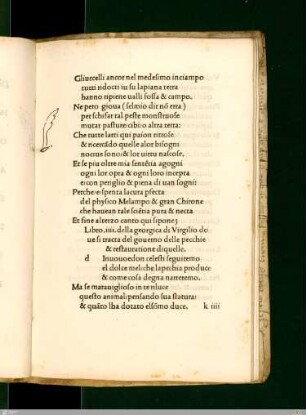 Gliuccelli ancor nel medesimo inciampo
tutti ridocti iu su lapiana terra
hanno ripiene ualli fossa & campo.
Ne pero gioua (selmio dir nō erra)
per schifar tal peste monstruose
mutar pasture cibi o altra terra:
Che tutte larti qui paion ritrose
& ricercādo quelle alor bisogni
nocute sono: & lor uirtu nascose.
Et se piu oltre mia sentētia agogni
ogni lor opta & ogni loro incepta
e icon periglio & piena di uan sogni:
Perche espenta lacura pfecta
del physico Melampo & gran Chirone
che hauean tale sciētia pura & necta
Et fine alterzo canto qui sipone;
Libro .iiii. della georgica di Virgilio do
ue si tracta del gouerno delle pecchie
& restauratione diquelle.
d Inuouoedon celesti seguiremo
el dolce mel: che lapechia produce
& come cosa degna narreremo.
Ma se marauiglioso in te riluce
questo animal: pensando sua statura:
& quāto lha dotato elsōmo duce. k iiii